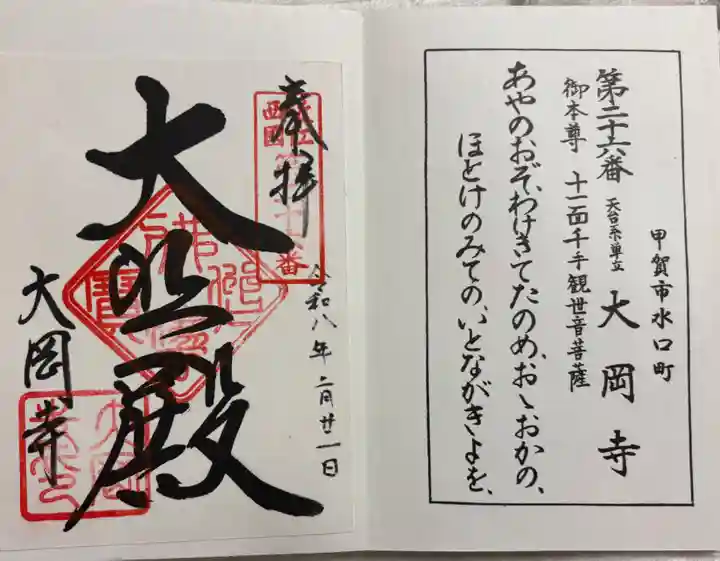 甲賀市水口町
第二十六番 天台系単立 大岡寺
御本尊 十一面千手観世音菩薩
あやのおぞ、わけきてたのめ、おゝおかの、
ほとけのみての、いとながきよを、
奉拝
令和八年二月廿二日
大悲殿
大岡寺